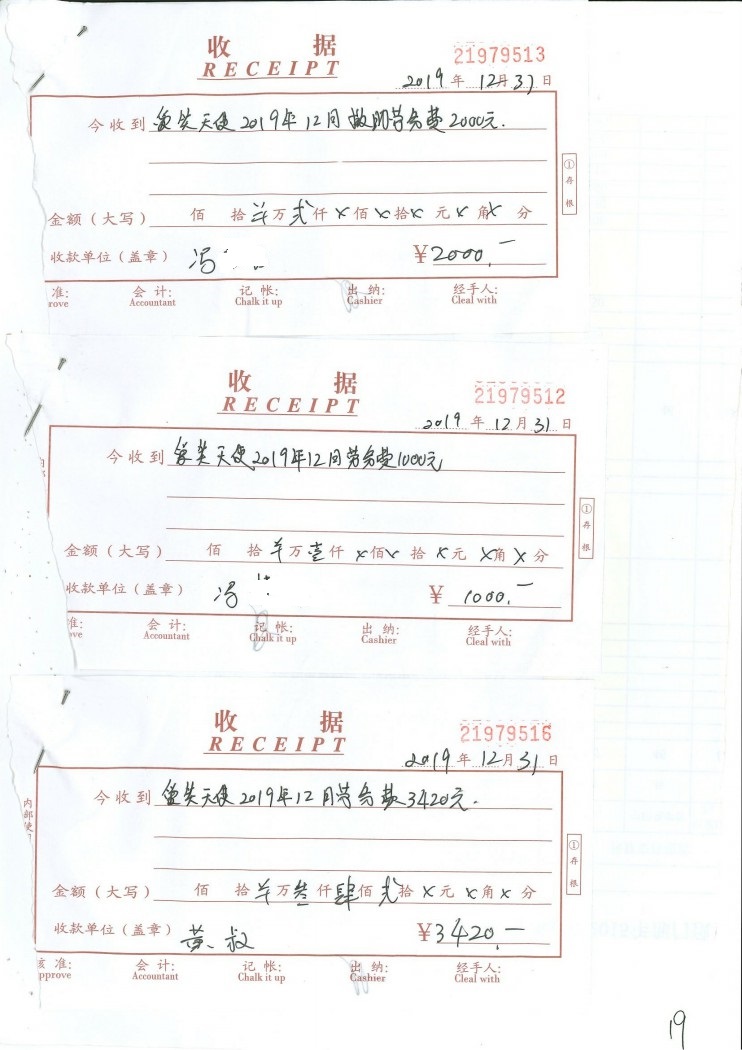 收 据
21979513
RECEIPT
2019 年 12 月 31 日
今收到 微笑天使2019年12月 劳务费2000元.
①存根
金额（大写） 佰 拾 羊 万 贰 仟 x 佰 x 拾 x 元 x 角 x 分
收款单位（盖章） 冯 ¥ 2000.—
准: 会 计: 记 帐: 出 纳: 经手人:
rove Accountant Chalk it up Cashier Cleal with
收 据
21979512
RECEIPT
2019 年 12 月 31 日
今收到 微笑天使2019年12月劳务费1000元
①存根
金额（大写） 佰 拾 羊 万 壹 仟 x 佰 x 拾 x 元 x 角 x 分
收款单位（盖章） 冯 ¥ 1000.—
准: 会 计: 记 帐: 出 纳: 经手人:
ove Accountant Chalk it up Cashier Cleal with
收 据
21979516
RECEIPT
2019 年 12 月 31 日
内部使
今收到 微笑天使2019年12月劳务费3420元.
①存根
金额（大写） 佰 拾 羊 万 叁 仟 肆 佰 贰 拾 x 元 x 角 x 分
收款单位（盖章） 黄叔 ¥ 3420.—
核 准: 会 计: 记 帐: 出 纳: 经手人:
pprove Accountant Chalk it up Cashier Cleal with
19